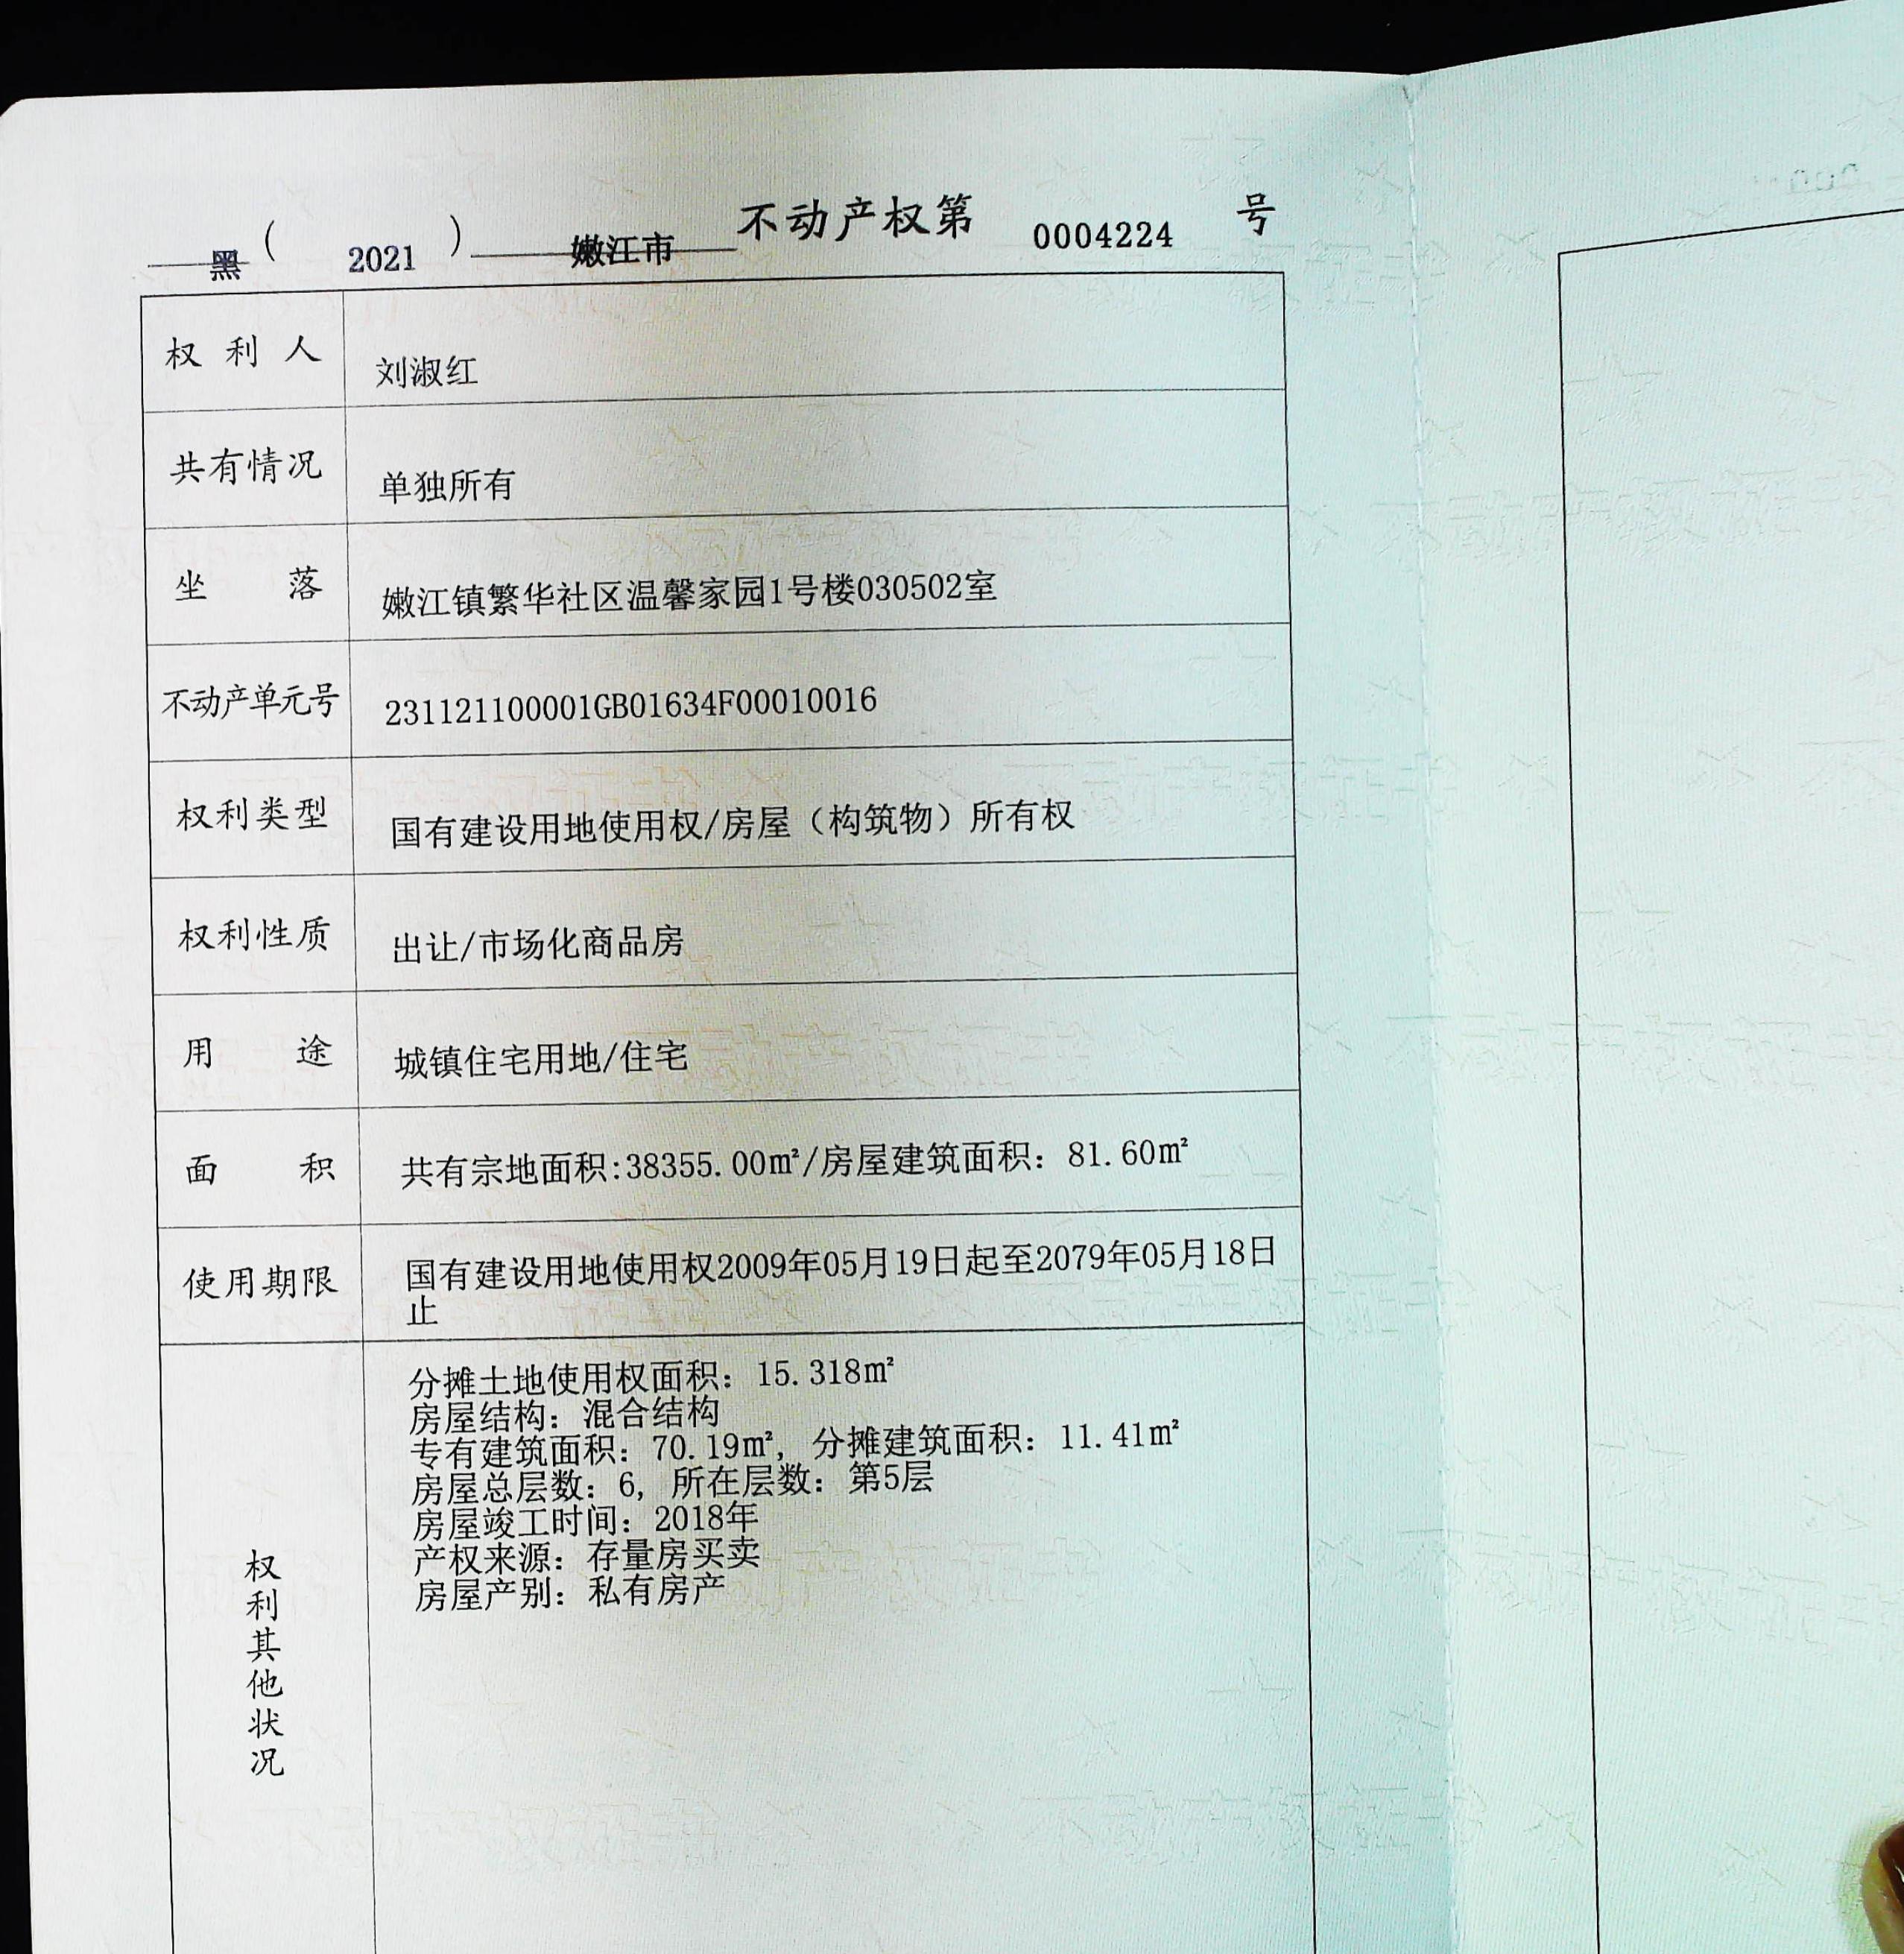 黑（2021）嫩江市不动产权第0004224号
权利人 刘淑红
共有情况 单独所有
坐落 嫩江镇繁华社区温馨家园1号楼030502室
不动产单元号 231121100001GB01634F00010016
权利类型 国有建设用地使用权/房屋（构筑物）所有权
权利性质 出让/市场化商品房
用途 城镇住宅用地/住宅
面积 共有宗地面积:38355.00㎡/房屋建筑面积：81.60㎡
使用期限 国有建设用地使用权2009年05月19日起至2079年05月18日
止
权利其他状况
分摊土地使用权面积：15.318㎡
房屋结构：混合结构
专有建筑面积：70.19㎡，分摊建筑面积：11.41㎡
房屋总层数：6，所在层数：第5层
房屋竣工时间：2018年
产权来源：存量房买卖
房屋产别：私有房产